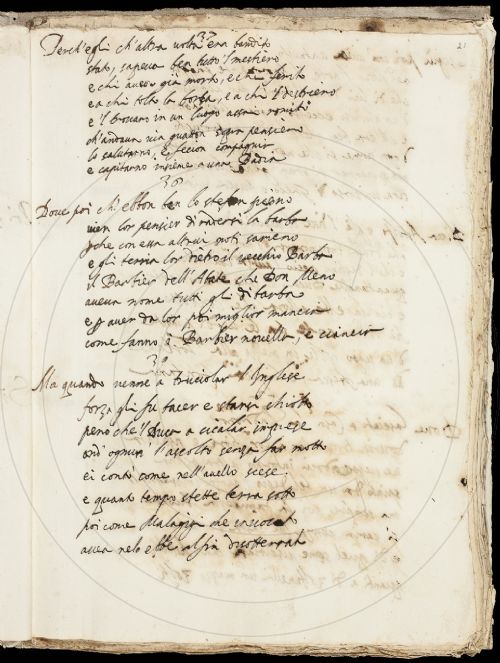 21
37
Perch'egli ch'altra volta era bandito
stato, sapeva ben tutto 'l mestiero
e chi avea già morto, e chi ferito
e a chi tolto la borsa, e a chi 'l destriero
e 'l trovaro in un luogo assai romito
ch'andava via
lo salutarno, e feccion compagnia
e capitarno insieme a una Badia
Dove poi ch'ebbon ben lo stefan pieno
vien lor pensier di radersi la barba
che con essa altrui noti sarieno
e gli terria lor dietro il vecchio Barba
il Barbier dell'Abate che Don Meno
aveva nome tutti gli disbarba
e per aver da lor poi miglior mancia
come fanno i Barbier novella, e ciancia
Ma quando venne a truciolar l'Inglese
forza gli fu tacer e starsi chiotto
però che 'l Duca a cicalar imprese
ond'ognun l'ascoltò senza far motto
ei contò come nell'avello scese
e quanto tempo stette terra sotto
poi come Malagigi che
avea nelo ebbe alfin dissotterrato